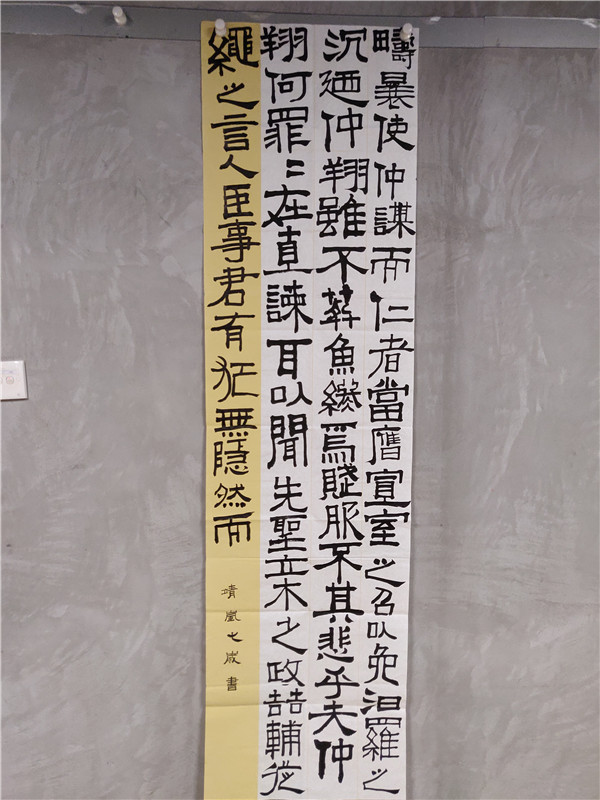 疇曩使仲謀而仁者當膺宣室之召以免汨羅之
沉廼仲翔雖不葬魚繳焉賦服不其悲乎夫仲
翔何罪〻在直諫耳以聞先聖立木之政喆輔從
繩之言人臣事君有犯無隱然而
靖嵐七歲書